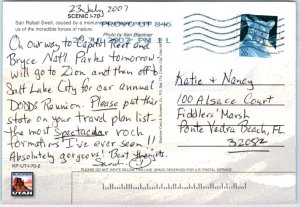 23 July 2007
SCENIC I-70
San Rafael Swell, caused by a monument
us of the incredible forces of nature.
Photo by Ken Blackner
PROVO UT 846
On our way to Capitol Reef and
Bryce Nat'l Parks tomorrow -
will go to Zion and then off to
Salt Lake City for our annual
DODDS Reunion. Please put this
state on your travel plan list -
the most spectacular rock
formations I've ever seen!!
Absolutely gorgeous! Best thoughts,
Sarah
Katie & Nancy
100 Alsace Court
Fiddlers' Marsh
Ponte Vedra Beach, FL
32082
KP-UT-I-70-2
PLEASE DO NOT WRITE BELOW THIS LINE. SPACE RESERVED FOR U.S. POSTAL SERVICE.
UTAH